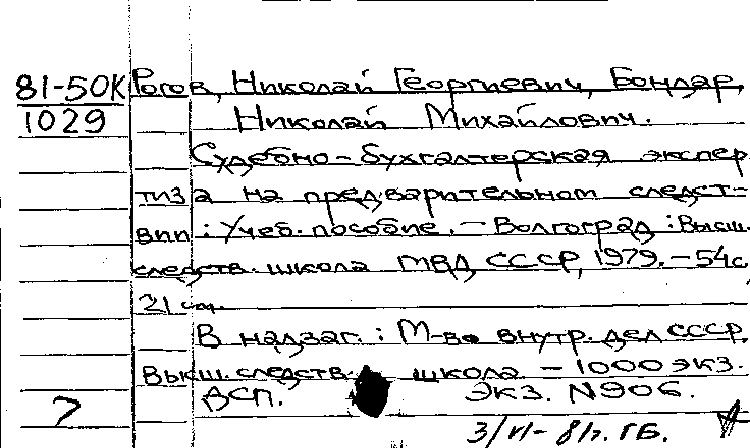 81-50К Рогов, Николай Георгиевич, Бондар,
1029 Николай Михайлович.
Судебно-бухгалтерская экспер
тиза на предварительном следст-
вии : Учеб. пособие. - Волгоград : Высш.
следств. школа МВД СССР, 1979. - 54с,
21 см.
В надзаг. : М-во внутр. дел СССР.
Высш. следств. школа - 1000 экз.
ДСП. Экз. N906.
3/VI-81г. ГБ.